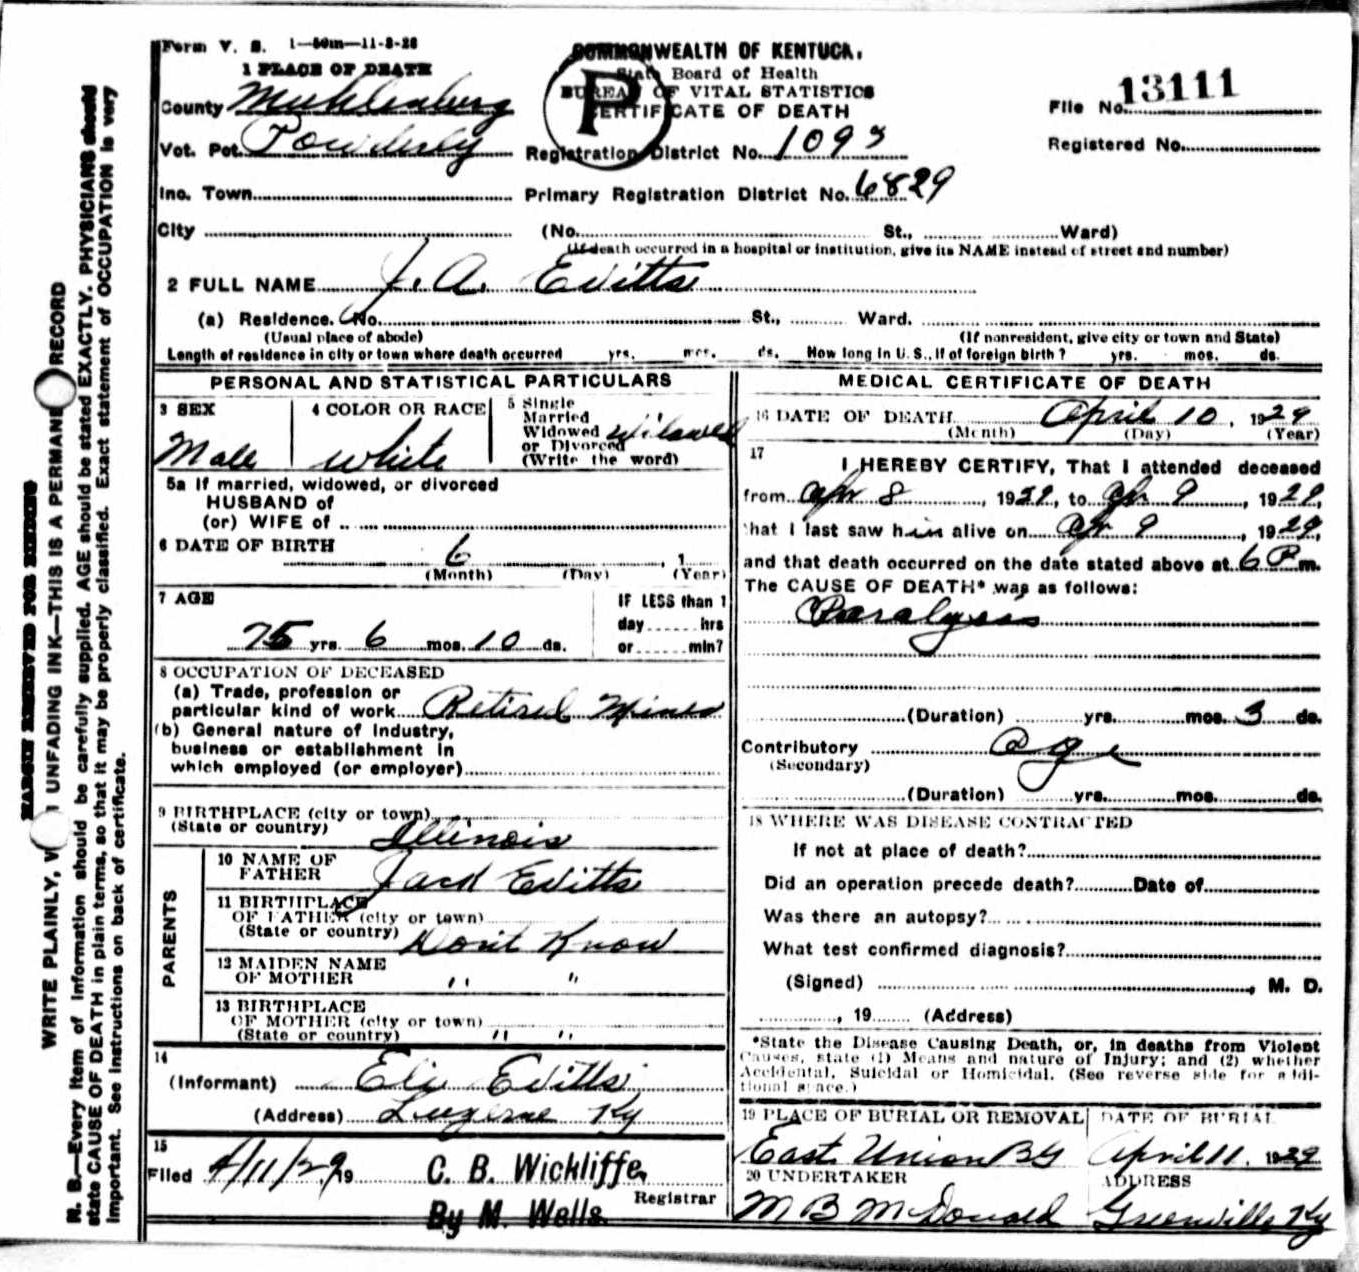 Form V. S. 1—50m—11-8-28
COMMONWEALTH OF KENTUCKY
State Board of Health
BUREAU OF VITAL STATISTICS
CERTIFICATE OF DEATH
P
File No. 13111
Registered No.
1 PLACE OF DEATH
County Muhlenberg
Vot. Pct. Powderly
Registration District No. 1095
Inc. Town
Primary Registration District No. 6829
City (No. St., Ward)
(If death occurred in a hospital or institution, give its NAME instead of street and number)
2 FULL NAME J. A. Evitts
(a) Residence. No. St., Ward.
(Usual place of abode) (If nonresident, give city or town and State)
Length of residence in city or town where death occurred yrs. mos. ds. How long in U. S., if of foreign birth? yrs. mos. ds.
PERSONAL AND STATISTICAL PARTICULARS
3 SEX
Male
4 COLOR OR RACE
White
5 Single
Married
Widowed
or Divorced
(Write the word)
Widowed
5a If married, widowed, or divorced
HUSBAND of
(or) WIFE of
6 DATE OF BIRTH 6 , 1
(Month) (Day) (Year)
7 AGE
75 yrs. 6 mos. 10 ds.
IF LESS than 1
day hrs
or min?
8 OCCUPATION OF DECEASED
(a) Trade, profession or
particular kind of work Retired Miner
(b) General nature of industry,
business or establishment in
which employed (or employer)
9 BIRTHPLACE (city or town)
(State or country) Illinois
PARENTS
10 NAME OF
FATHER Jack Evitts
11 BIRTHPLACE
OF FATHER (city or town)
(State or country) Don't Know
12 MAIDEN NAME
OF MOTHER " "
13 BIRTHPLACE
OF MOTHER (city or town)
(State or country) " "
14
(Informant) Eli Evitts
(Address) Luzerne Ky
15
Filed 4/11/29 19 C. B. Wickliffe,
Registrar
By M. Wells.
MEDICAL CERTIFICATE OF DEATH
16 DATE OF DEATH April 10, 1929
(Month) (Day) (Year)
17
I HEREBY CERTIFY, That I attended deceased
from Apr 8, 1929, to Apr 9, 1929,
that I last saw him alive on Apr 9, 1929,
and that death occurred on the date stated above at 6 P m.
The CAUSE OF DEATH* was as follows:
Paralysis
(Duration) yrs. mos. 3 ds.
Contributory Age
(Secondary)
(Duration) yrs. mos. ds.
18 WHERE WAS DISEASE CONTRACTED
If not at place of death?
Did an operation precede death? Date of
Was there an autopsy?
What test confirmed diagnosis?
(Signed) , M. D.
, 19 (Address)
*State the Disease Causing Death, or, in deaths from Violent
Causes, state (1) Means and nature of Injury; and (2) whether
Accidental, Suicidal or Homicidal. (See reverse side for addi-
tional space.)
19 PLACE OF BURIAL OR REMOVAL
East Union BG
DATE OF BURIAL
April 11, 1929
20 UNDERTAKER
M B McDonald
ADDRESS
Greenville Ky
MARGIN RESERVED FOR BINDING
WRITE PLAINLY, W UNFADING INK—THIS IS A PERMANE RECORD
N. B.—Every item of information should be carefully supplied. AGE should be stated EXACTLY. PHYSICIANS should
state CAUSE OF DEATH in plain terms, so that it may be properly classified. Exact statement of OCCUPATION is very
important. See instructions on back of certificate.